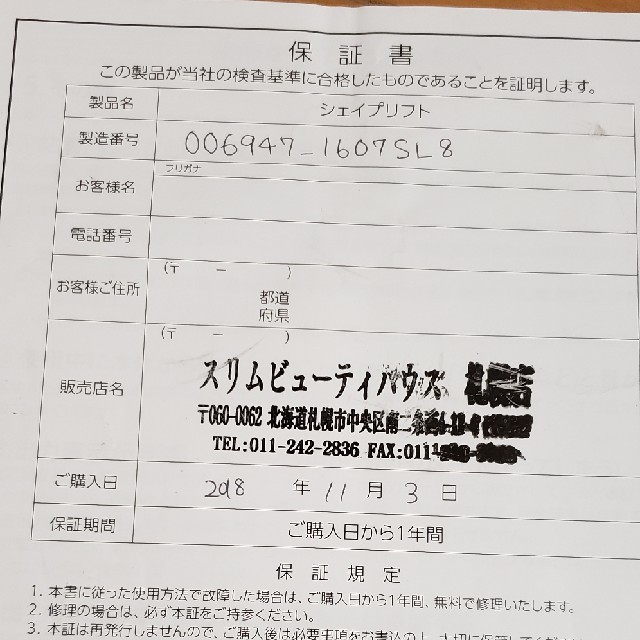 保証書
この製品が当社の検査基準に合格したものであることを証明します。
製品名 シェイプリフト
製造番号 006947-1607SL8
フリガナ
お客様名
電話番号
お客様ご住所 (〒 - )
都道
府県
販売店名 (〒 - )
スリムビューティハウス
〒060-0062 北海道札幌市中央区南二条西
TEL:011-242-2836 FAX:011
ご購入日 2018 年 11 月 3 日
保証期間 ご購入日から1年間
保証規定
1. 本書に従った使用方法で故障した場合は、ご購入日から1年間、無料で修理いたします。
2. 修理の場合は、必ず本証をご持参ください。
3. 本証は再発行しませんので、ご購入後は必要事項をお書込の上、大切に保管してください